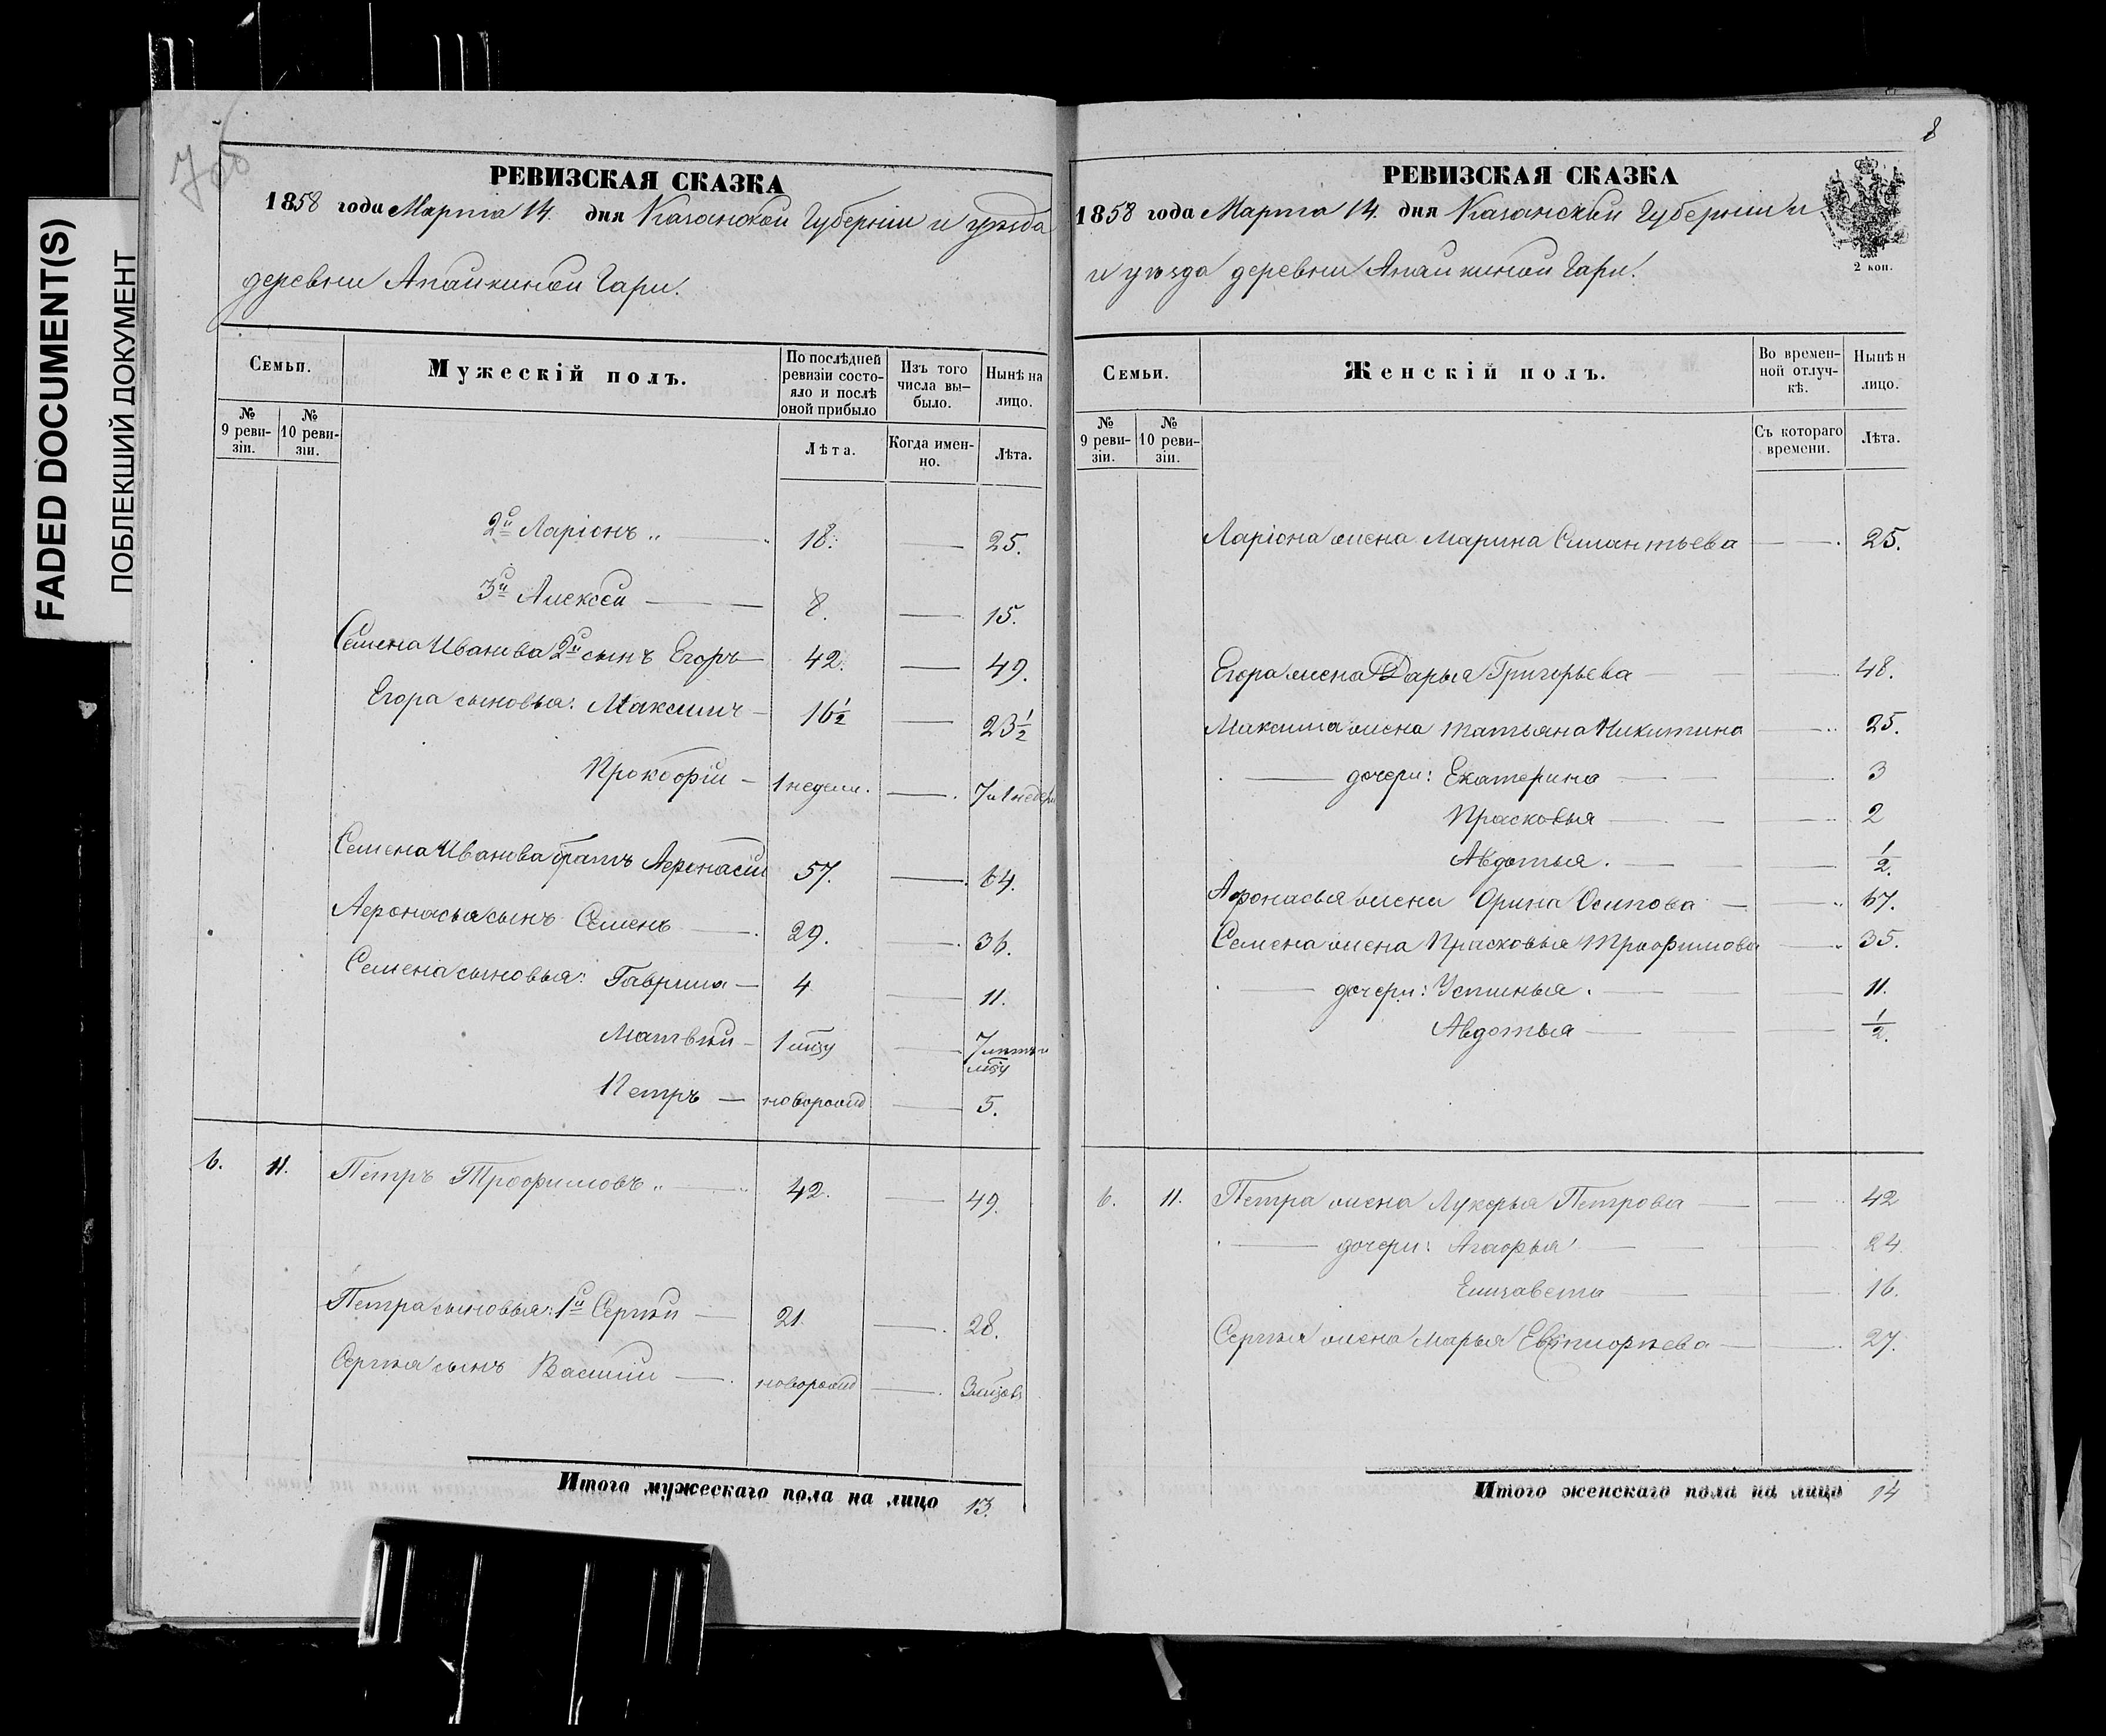 FADED DOCUMENT(S)
ПОБЛЕКШИЙ ДОКУМЕНТ
РЕВИЗСКАЯ СКАЗКА
1858 года Марта 14. дня Казанской Губернiи и уѣзда
деревни Апайкиной Гари.
Семьи.
Мужескiй полъ.
По послѣдней ревизiи состояло и послѣ оной прибыло
Изъ того числа выбыло.
Нынѣ на лицо.
№ 9 ревизiи.
№ 10 ревизiи.
Лѣта.
Когда именно.
Лѣта.
2й Ларiонъ „ — 18. — 25.
3й Алексей — 8. — 15.
Семена Иванова 2й сынъ Егоръ — 42. — 49.
Егора сыновья: Максимъ — 16½ — 23½
Прокофiй — 1 недели. — 7 и 1 недели
Семена Иванова братъ Афонасiй 57. — 64.
Афонасья сынъ Семенъ — 29. — 36.
Семена сыновья: Гаврила — 4 — 11.
Матвѣй — 1 мцу — 7 лѣтъ и мцу
Петръ — новорожд — 5.
6. 11. Петръ Трофимовъ „ — 42. — 49.
Петра сыновья: 1й Сергѣй — 21. — 28.
Сергѣя сынъ Василiй — новорожд — 3 мцовъ
Итого мужескаго пола на лицо 13.
8
РЕВИЗСКАЯ СКАЗКА
1858 года Марта 14. дня Казанской Губернiи и
и уѣзда деревни Апайкиной Гари.
2 коп.
Семьи.
Женскiй полъ.
Во временной отлучкѣ.
Нынѣ н лицо.
№ 9 ревизiи.
№ 10 ревизiи.
Съ котораго времени.
Лѣта.
Ларiона жена Марина — 25.
Егора жена Дарья Григорьева — 48.
Максима жена Татьяна Никитина — 25.
— дочери: Екатерина — 3
Прасковья — 2
Авдотья. — ½.
Афонасья жена Орина Осипова — 67.
Семена жена Прасковья Трофимова — 35.
— дочери: Устинья. — 11.
Авдотья — ½.
6. 11. Петра жена Лукерья Петрова — 42
— дочери: Агафья — 24.
Елизавета — 16.
Сергѣя жена Марья — 27.
Итого женскаго пола на лицо 14